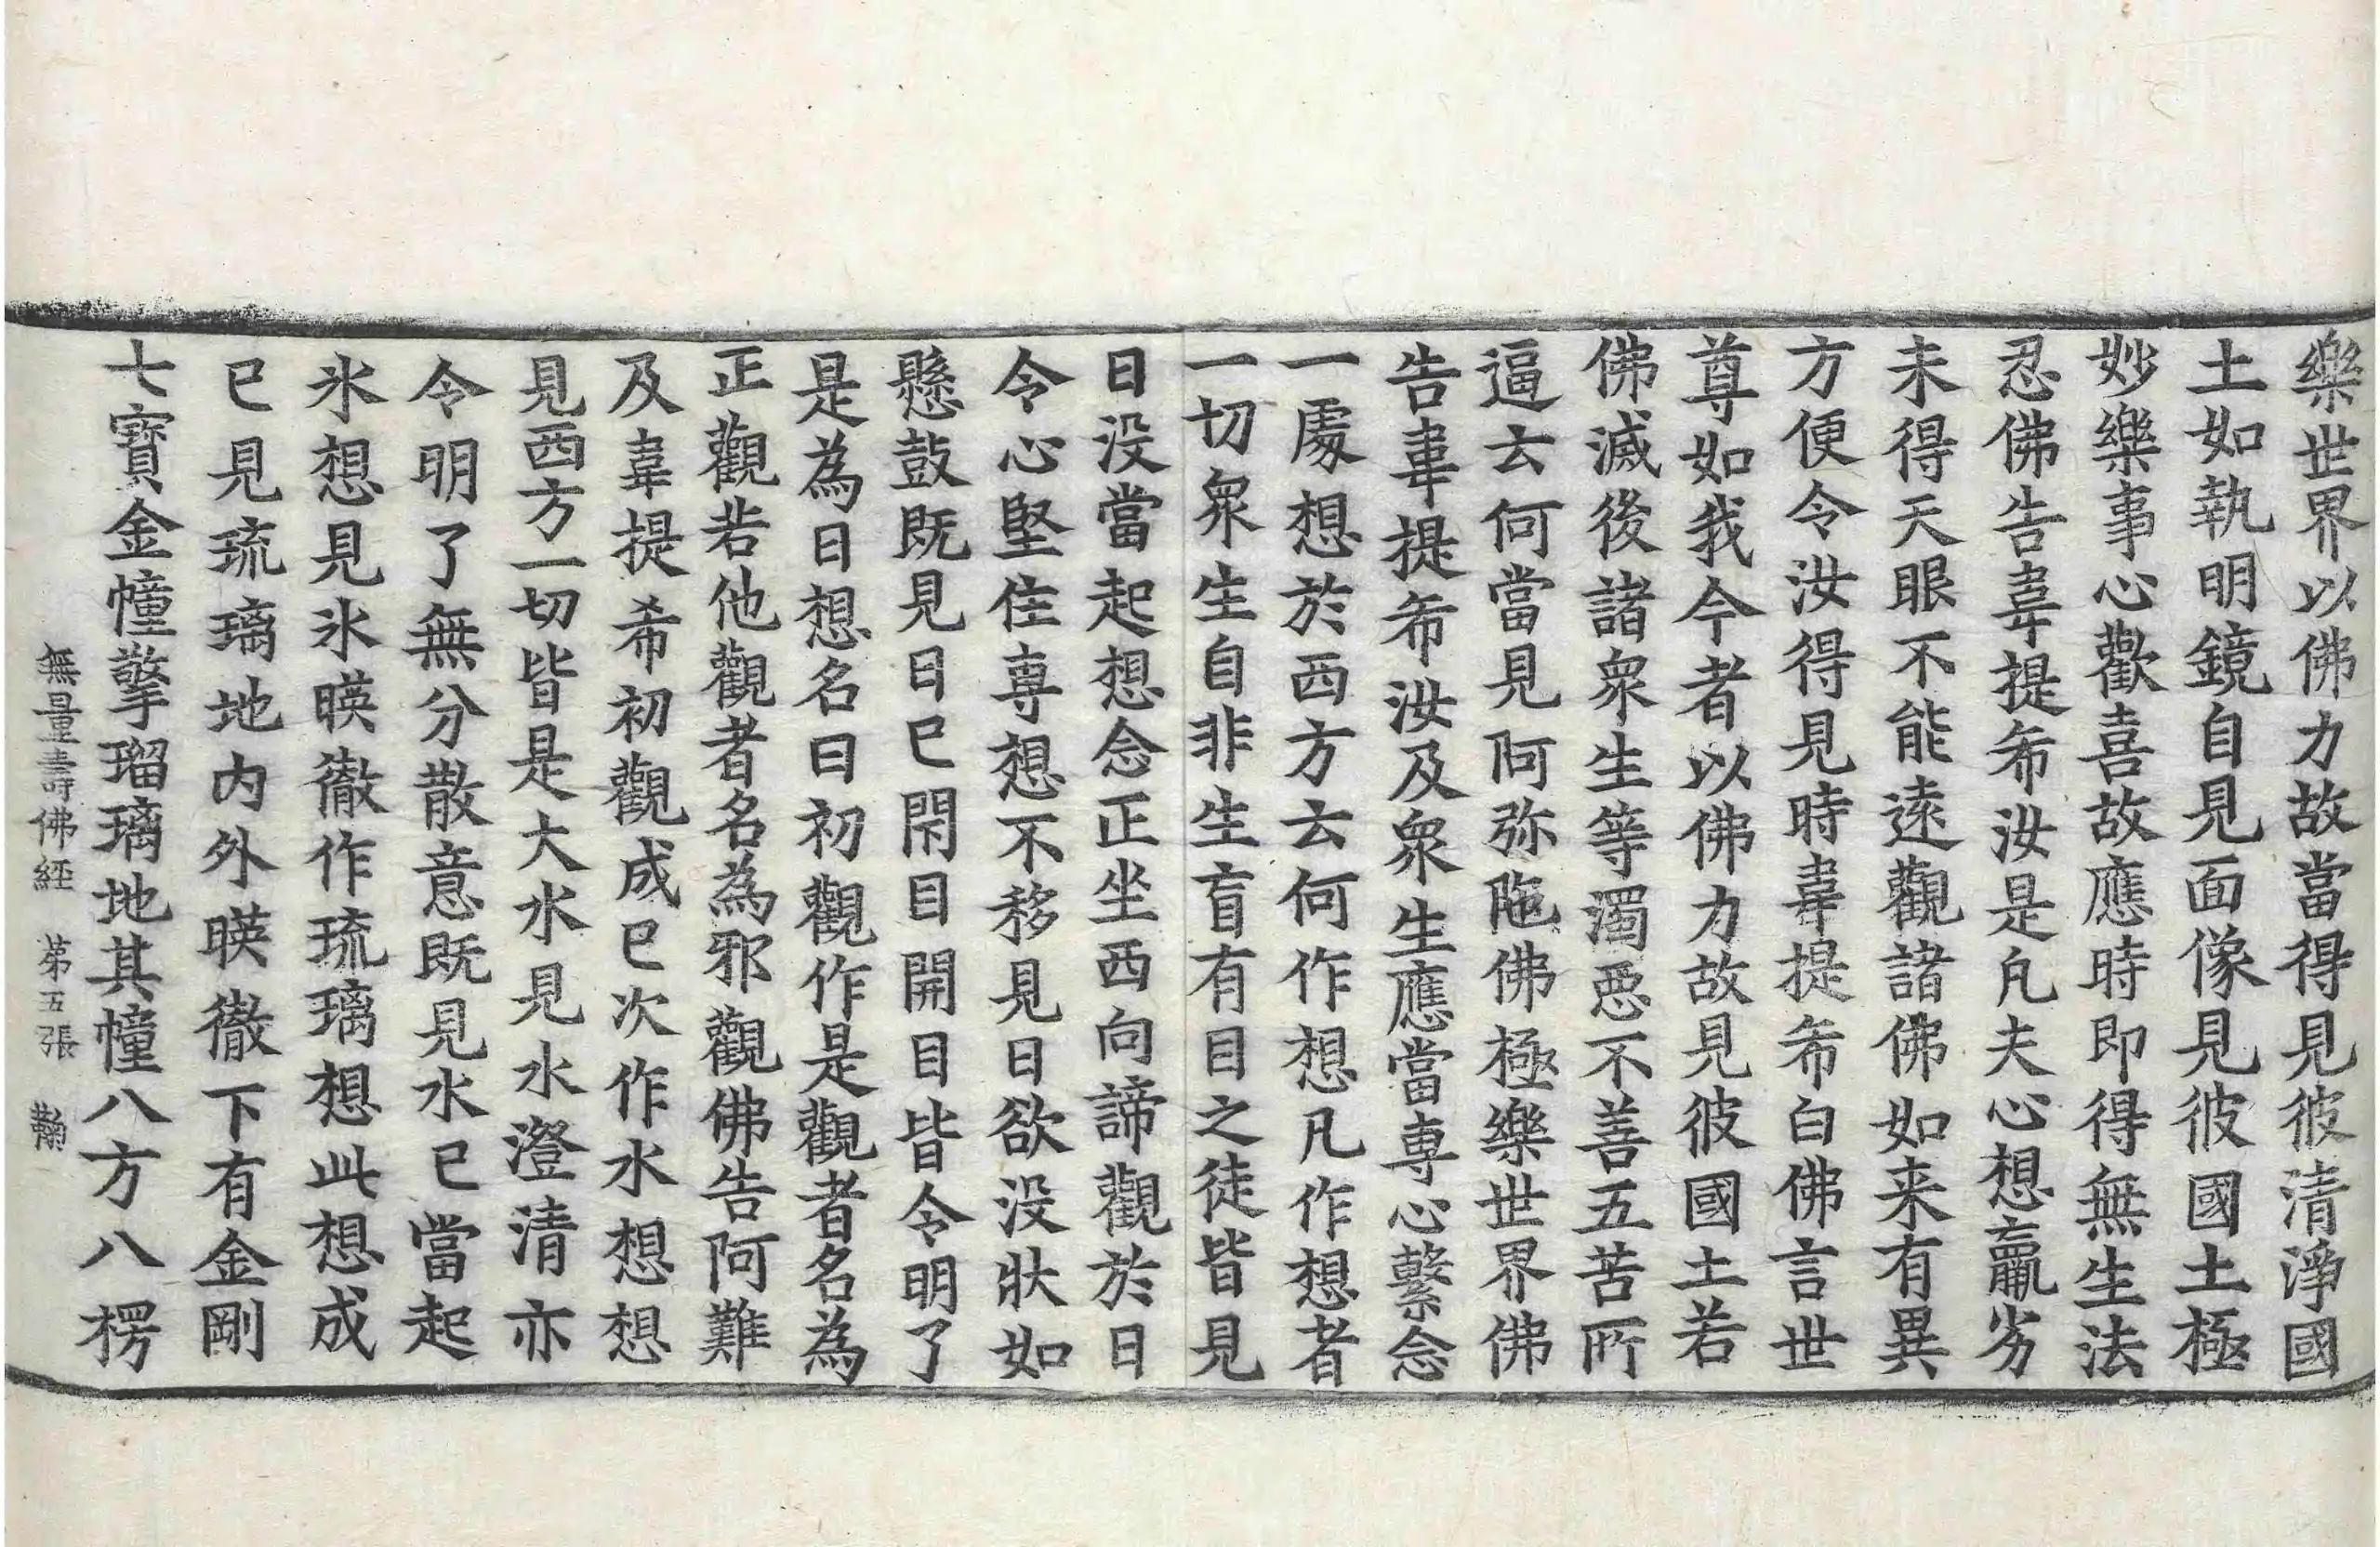 樂世界以佛力故當得見彼清淨國
土如執明鏡自見面像見彼國土極
妙樂事心歡喜故應時即得無生法
忍佛告韋提希汝是凡夫心想羸劣
未得天眼不能遠觀諸佛如来有異
方便令汝得見時韋提希白佛言世
尊如我今者以佛力故見彼國土若
佛滅後諸衆生等濁惡不善五苦所
逼云何當見阿弥陁佛極樂世界佛
告韋提希汝及衆生應當專心繫念
一處想於西方云何作想凡作想者
一切衆生自非生盲有目之徒皆見
日没當起想念正坐西向諦觀於日
令心堅住專想不移見日欲没狀如
懸鼓既見日已閇目開目皆令明了
是為日想名曰初觀作是觀者名為
正觀若他觀者名為邪觀佛告阿難
及韋提希初觀成已次作水想想
見西方一切皆是大水見水澄清亦
令明了無分散意既見水已當起
氷想見氷暎徹作琉璃想此想成
已見琉璃地内外暎徹下有金剛
七寶金幢擎瑠璃地其幢八方八楞
無量壽佛經 第五張